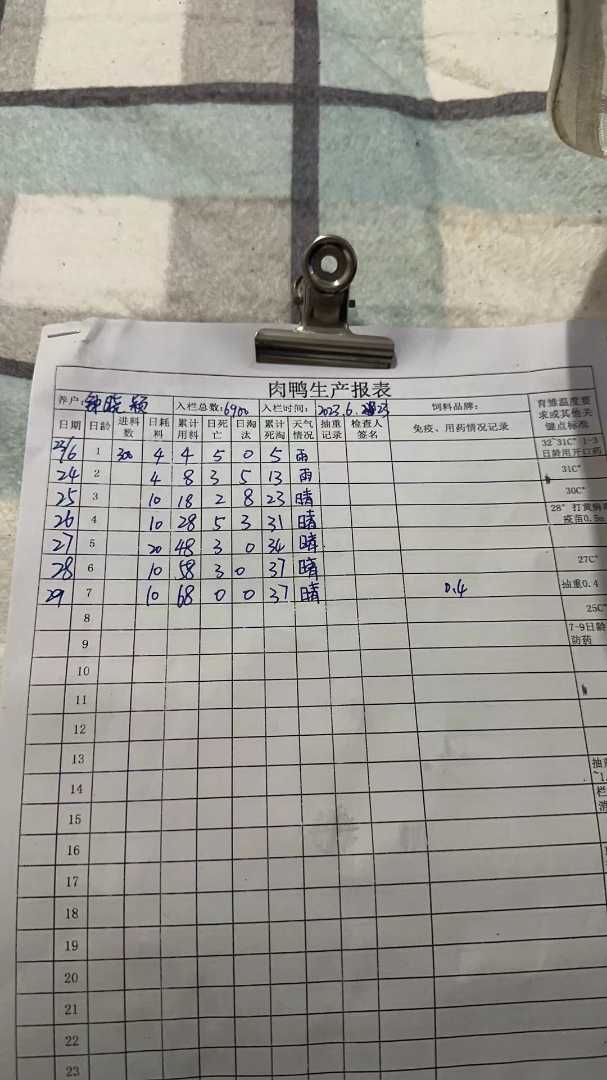 肉鸭生产报表
养户: 钟晓颖 入栏总数: 6900 入栏时间: 2023.6.23 饲料品牌: 育雏温度要求或其他关键点标准
日期 日龄 进料数 日耗料 累计用料 日死亡 日淘汰 累计死淘 天气情况 抽重记录 检查人签名 免疫、用药情况记录
23/6 1 300 4 4 5 0 5 雨 32~31C° 1-3日龄用开口药
24 2 4 8 3 5 13 雨 31C°
25 3 10 18 2 8 23 晴 30C°
26 4 10 28 5 3 31 晴 28° 打黄病 疫苗0.5
27 5 20 48 3 0 34 晴
28 6 10 58 3 0 37 晴 27C°
29 7 10 68 0 0 37 晴 0.4 抽重0.4
8 25C°
9 7-9日龄 防药
10
11
12
13
14
15
16
17
18
19
20
21
22
23